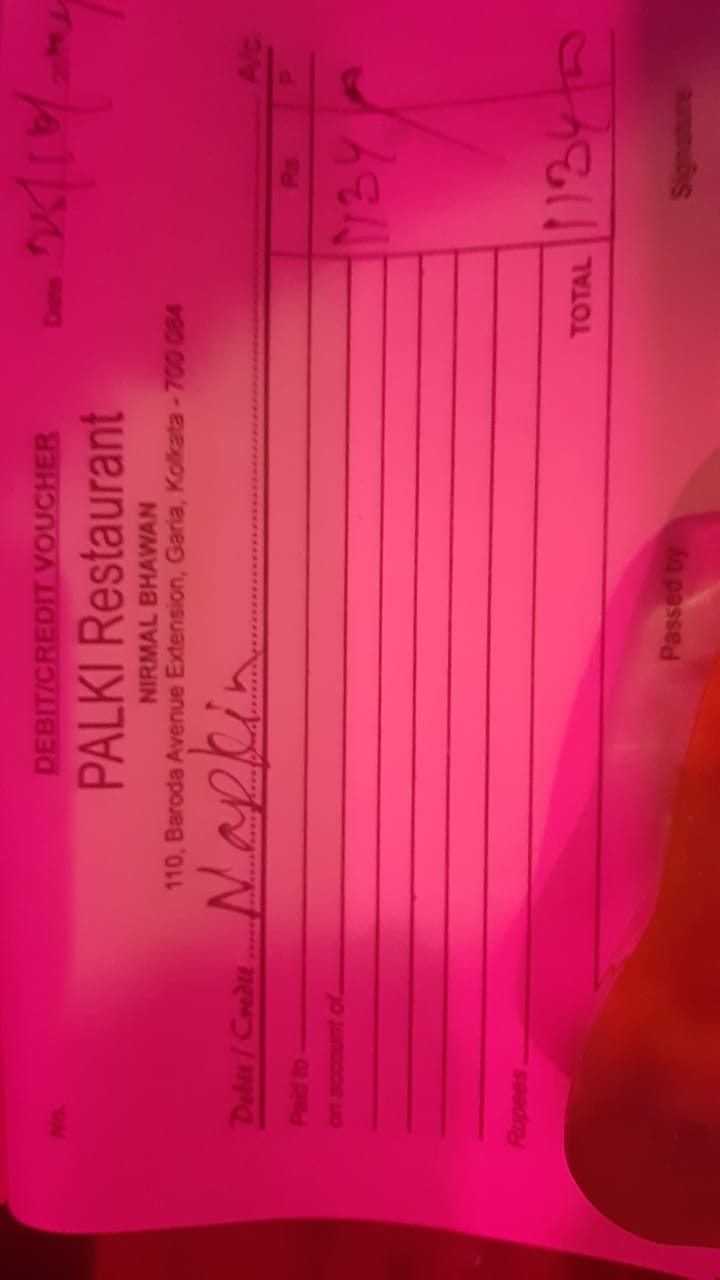 No.
DEBIT/CREDIT VOUCHER
Date
PALKI Restaurant
NIRMAL BHAWAN
110, Baroda Avenue Extension, Garia, Kolkata - 700 084
Debit / Credit Napkin A/c.
Paid to Rs. P.
on account of 1134
Rupees
TOTAL 1134
Passed by Signature